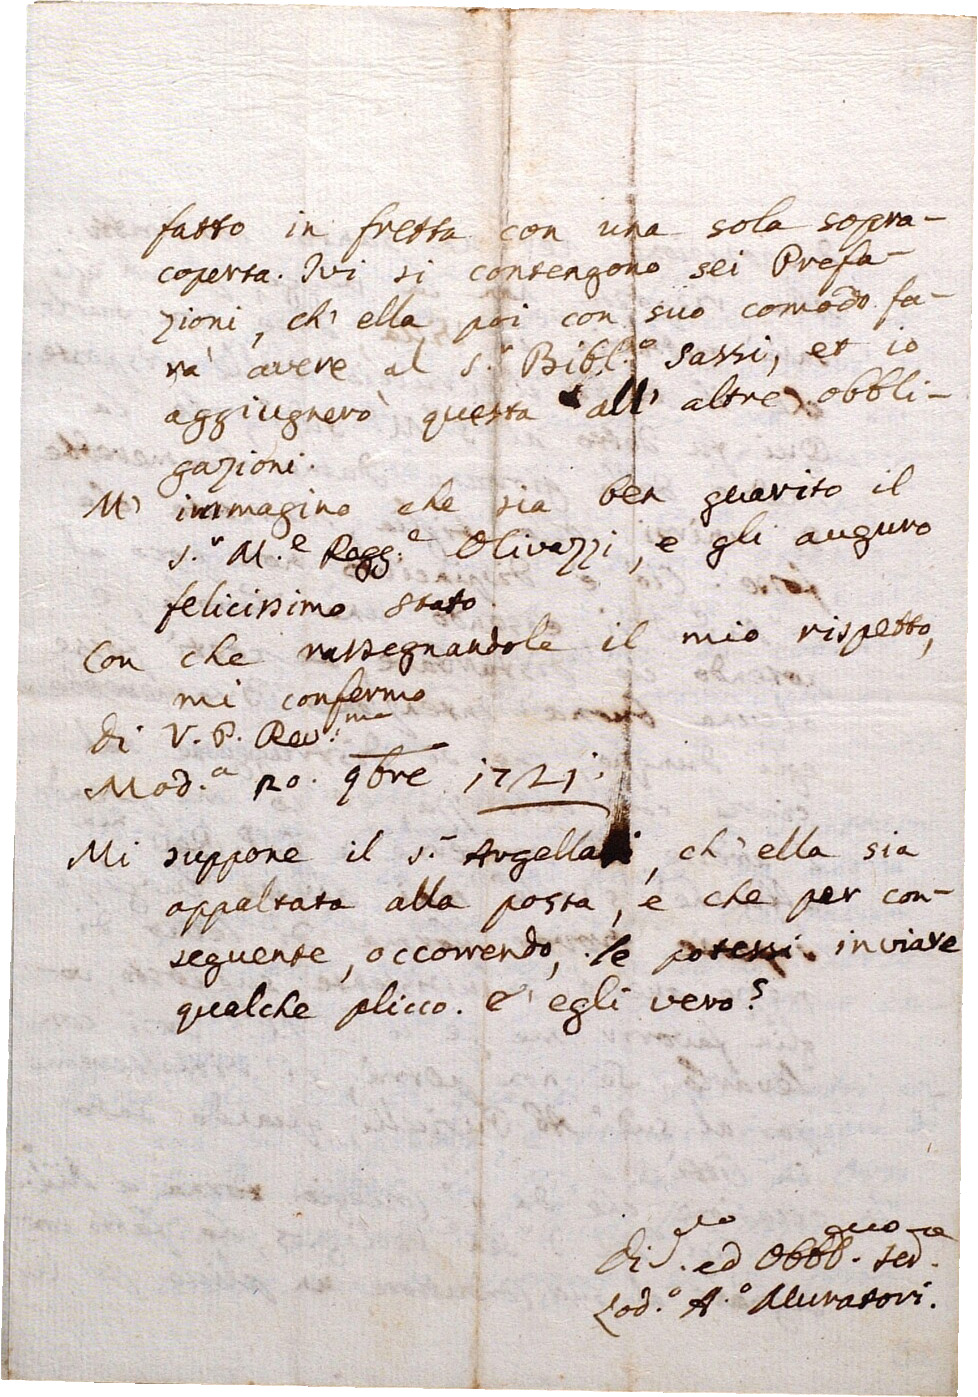 fatto in fretta con una sola sopra-
coperta. Ivi si contengono sei Prefa-
zioni, ch' ella poi con suo comodo fa-
rà avere al S.r Bibl.o Sassi, et io
aggiugnerò questa all' altre obbli-
gazioni.
M' immagino che sia ben guarito il
S.r M.e Regg.e Olivazzi, e gli auguro
felicissimo stato.
Con che rassegnandole il mio rispetto,
mi confermo
di V. P. Rev.ma
Mod.a 20. 9bre 1721.
Mi suppone il S.r Argellati, ch' ella sia
appaltata alla posta, e che per con-
seguente, occorrendo, le potessi inviare
qualche plicco. E' egli vero?
Di.vmo ed Obbl.mo ser.re
Lod.o A.o Muratori.